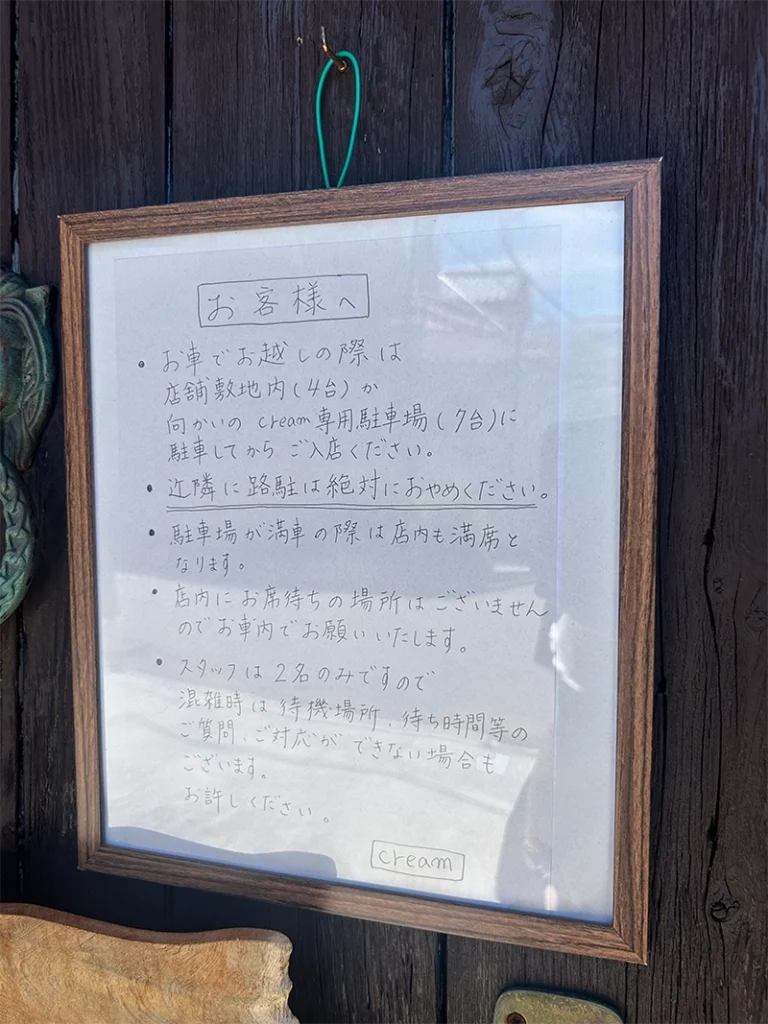 お客様へ
・お車でお越しの際は
店舗敷地内(4台)か
向かいの cream専用駐車場(7台)に
駐車してから ご入店ください。
・近隣に路駐は絶対におやめください。
・駐車場が満車の際は店内も満席と
なります。
・店内にお席待ちの場所はございません
のでお車内でお願いいたします。
・スタッフは2名のみですので
混雑時は待機場所、待ち時間等の
ご質問、ご対応ができない場合も
ございます。
お許しください。
cream